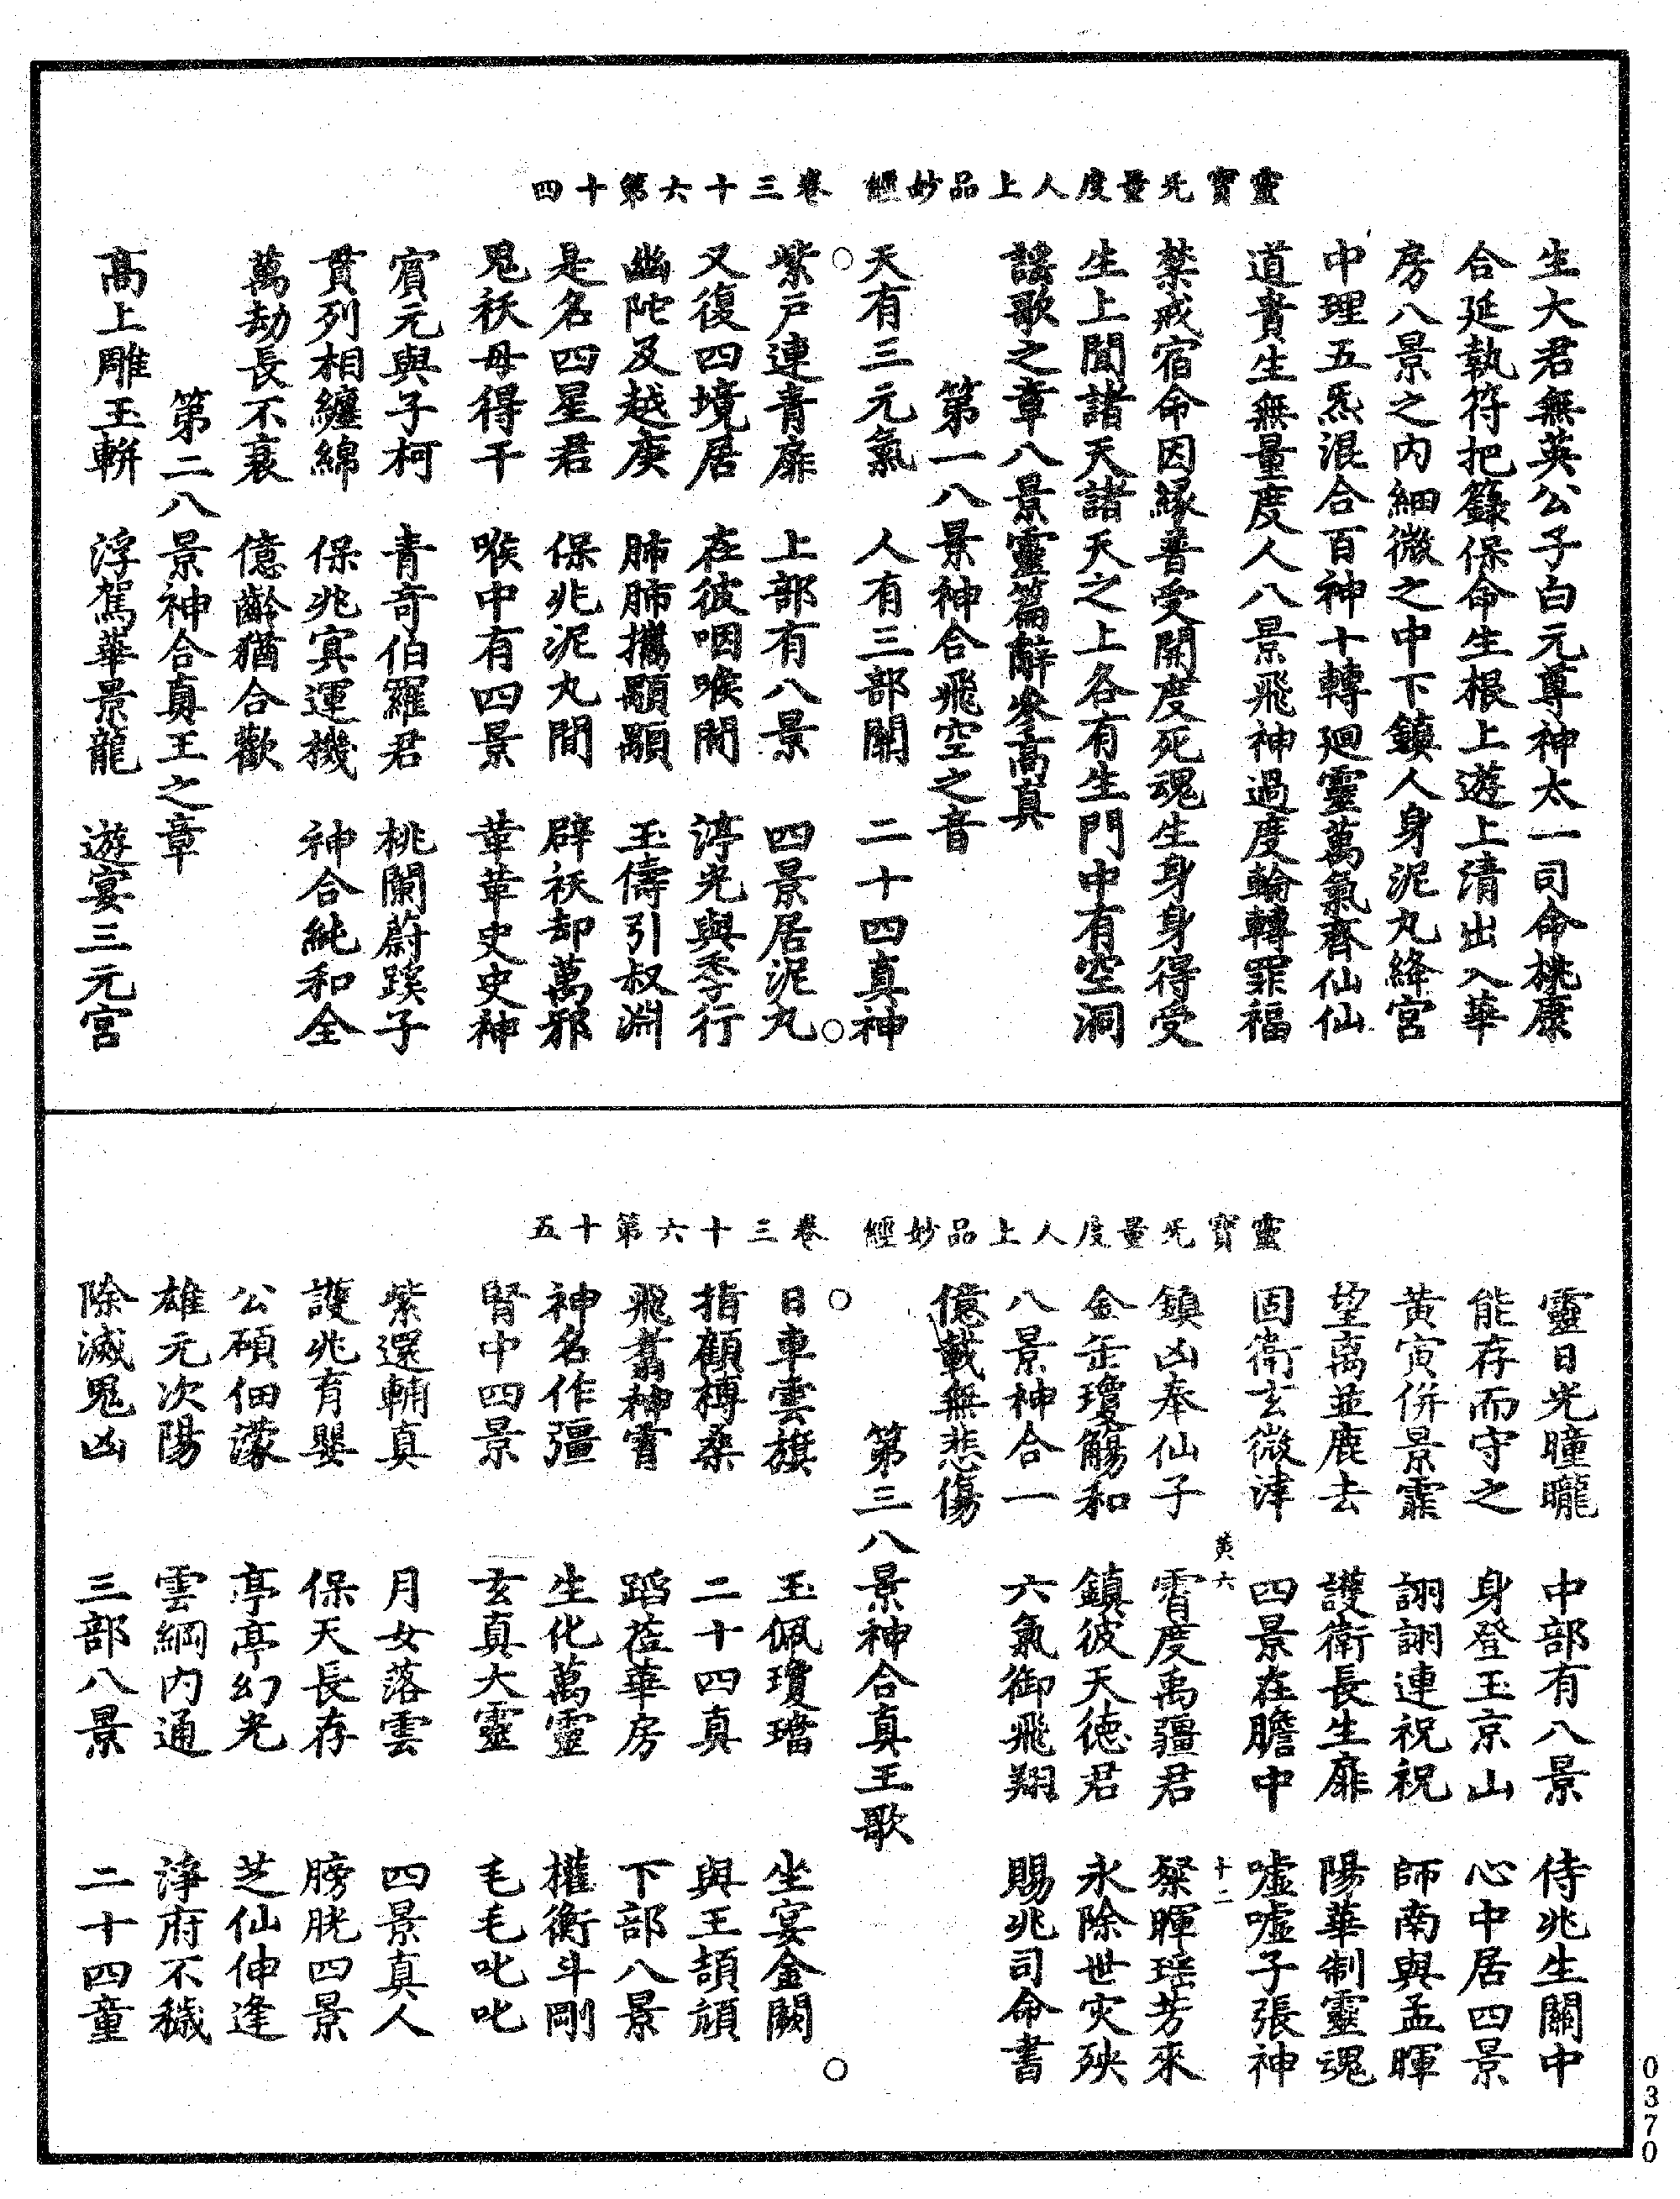 靈寳无量度人上品妙經　卷三十六第十四
生大君無英公子白元尊神太一司命桃康
合延執符把籙保命生根上遊上清出入華
房八景之內細微之中下鎮人身泥丸絳宮
中理五炁混合百神十轉廻靈萬氣齊仙仙
道貴生無量度人八景飛神過度輪轉罪福
禁戒宿命因緣普受開度死魂生身身得受
生上聞諸天諸天之上各有生門中有空洞
謠歌之章八景靈篇辭參高真
第一八景神合飛空之音
天有三元氣　人有三部關　二十四真神
紫戶連青扉　上部有八景　四景居泥丸
又復四境居　在彼咽喉間　渟光與季行
幽陀及越庚　肺肺攜顒顒　玉儔引叔淵
是名四星君　保兆泥丸間　辟祆却萬邪
鬼祆毋得干　喉中有四景　華華史史神
賓元與子柯　青奇伯羅君　桃闌蔚蹊子
貫列相纏綿　保兆寞運機　神合純和全
萬劫長不衰　億齡猶合歡
第二八景神合真王之章
高上雕玉輧　浮駕華景龍　遊宴三元宮
靈寳无量度人上品妙經　卷三十六第十五
靈日光曈曨　中部有八景　侍兆生關中
能存而守之　身登玉京山　心中居四景
黃寅併景霏　詡詡連祝祝　師南與孟暉
望离並鹿去　護衛長生扉　陽華制靈魂
固衛玄微津　四景在膽中　噓噓子張神
黃六　十二
鎮凶奉仙子　霄度禹彊君　粲暉瑶芳來
金缶瓊觴和　鎮彼天德君　永除世灾殃
八景神合一　六氣御飛翔　賜兆司命書
億載無悲傷
第三八景神合真王歌
日車雲旗　玉佩瓊璫　坐宴金闕
指顧榑桑　二十四真　與王頡頏
飛翥神霄　蹈莅華房　下部八景
神名作彊　生化萬靈　權衡斗剛
腎中四景　玄真大靈　毛毛叱叱
紫還輔真　月女落雲　四景真人
護兆育嬰　保天長存　膀胱四景
公碩佃濛　亭亭幻光　芝仙伸逢
雄元次陽　雲綱內通　淨府不穢
除滅鬼凶　三部八景　二十四童
0370